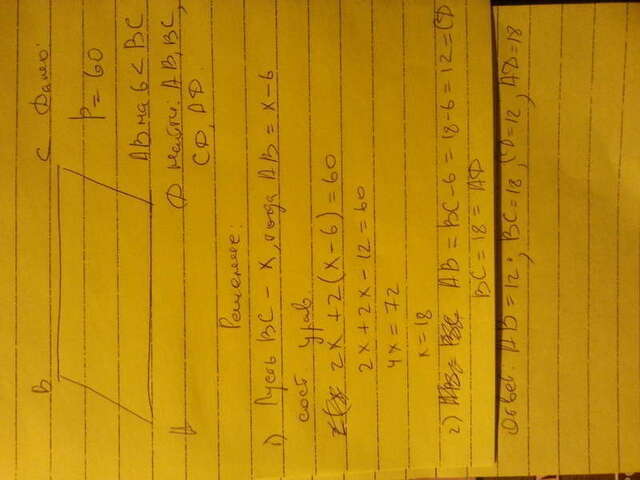 B C Дано:
p = 60
AB на 6 < BC
A D Найти: AB, BC,
CD, AD.
Решение:
1) Пусть BC - x, тогда AB = x - 6
сост урав
2x + 2(x - 6) = 60
2x + 2x - 12 = 60
4x = 72
x = 18
2) AB = BC - 6 = 18 - 6 = 12 = CD
BC = 18 = AD
Ответ: AB = 12; BC = 18, CD = 12, AD = 18